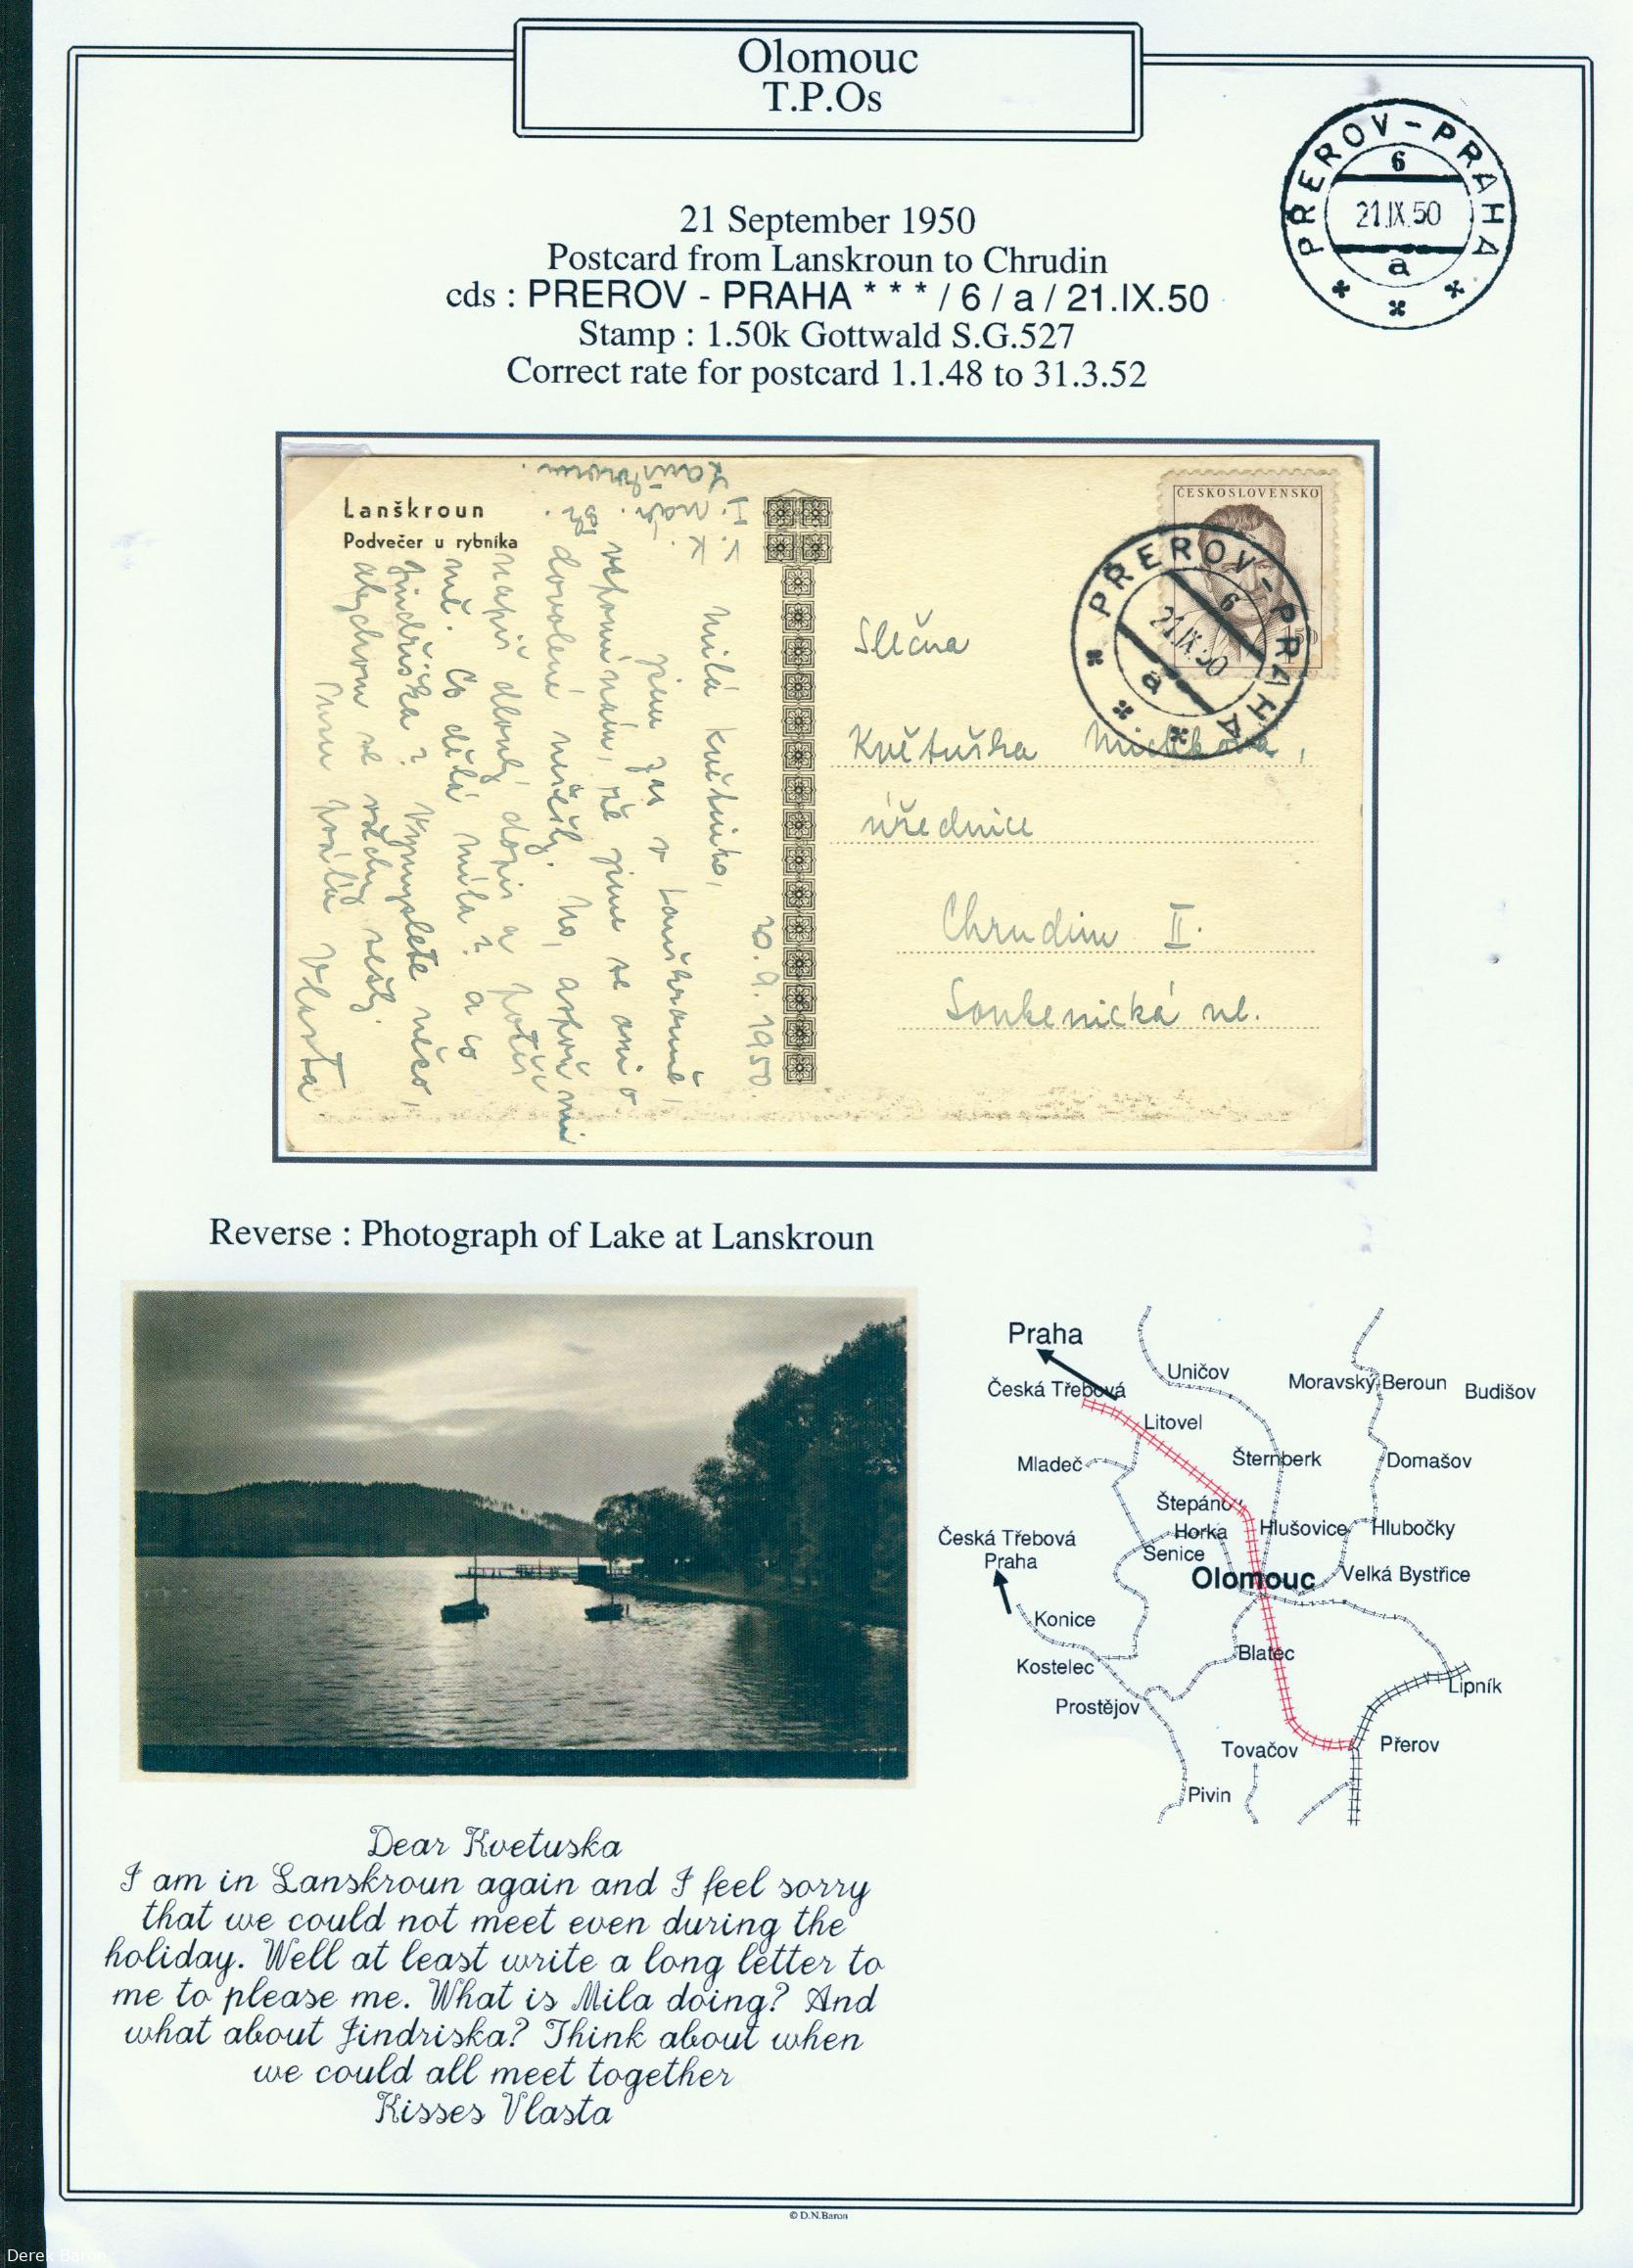 Olomouc
T.P.Os
PŘEROV - PRAHA
6
21.IX.50
a
21 September 1950
Postcard from Lanskroun to Chrudin
cds : PREROV - PRAHA * * * / 6 / a / 21.IX.50
Stamp : 1.50k Gottwald S.G.527
Correct rate for postcard 1.1.48 to 31.3.52
Lanškroun
Podvečer u rybníka
20. 9. 1950.
Milá Květuško,
jsem zas v Lanškrouně,
vzpomínám, že jsme se ani o
dovolené nesešly. No, aspoň mi
napiš dlouhý dopis a potěš
mě. Co dělá Míla? a co
Jindřiška? Vymyslete něco,
abychom se všechny sešly.
Vlasta.
Lanškroun.
ČESKOSLOVENSKO
1.50
PŘEROV - PRAHA
6
21.IX.50
a
Slečna
Květuška
úřednice
Chrudim II.
Soukenická ul.
Reverse : Photograph of Lake at Lanskroun
Praha
Česká Třebová
Uničov
Moravský Beroun
Budišov
Litovel
Mladeč
Šternberk
Domašov
Štepánov
Horka
Hlušovice
Hlubočky
Česká Třebová
Praha
Senice
Olomouc
Velká Bystřice
Konice
Blatec
Kostelec
Lipník
Prostějov
Tovačov
Přerov
Pivin
Dear Kvetuska
I am in Lanskroun again and I feel sorry
that we could not meet even during the
holiday. Well at least write a long letter to
me to please me. What is Mila doing? And
what about Jindriska? Think about when
we could all meet together
Kisses Vlasta
© D.N.Baron
Derek Baron